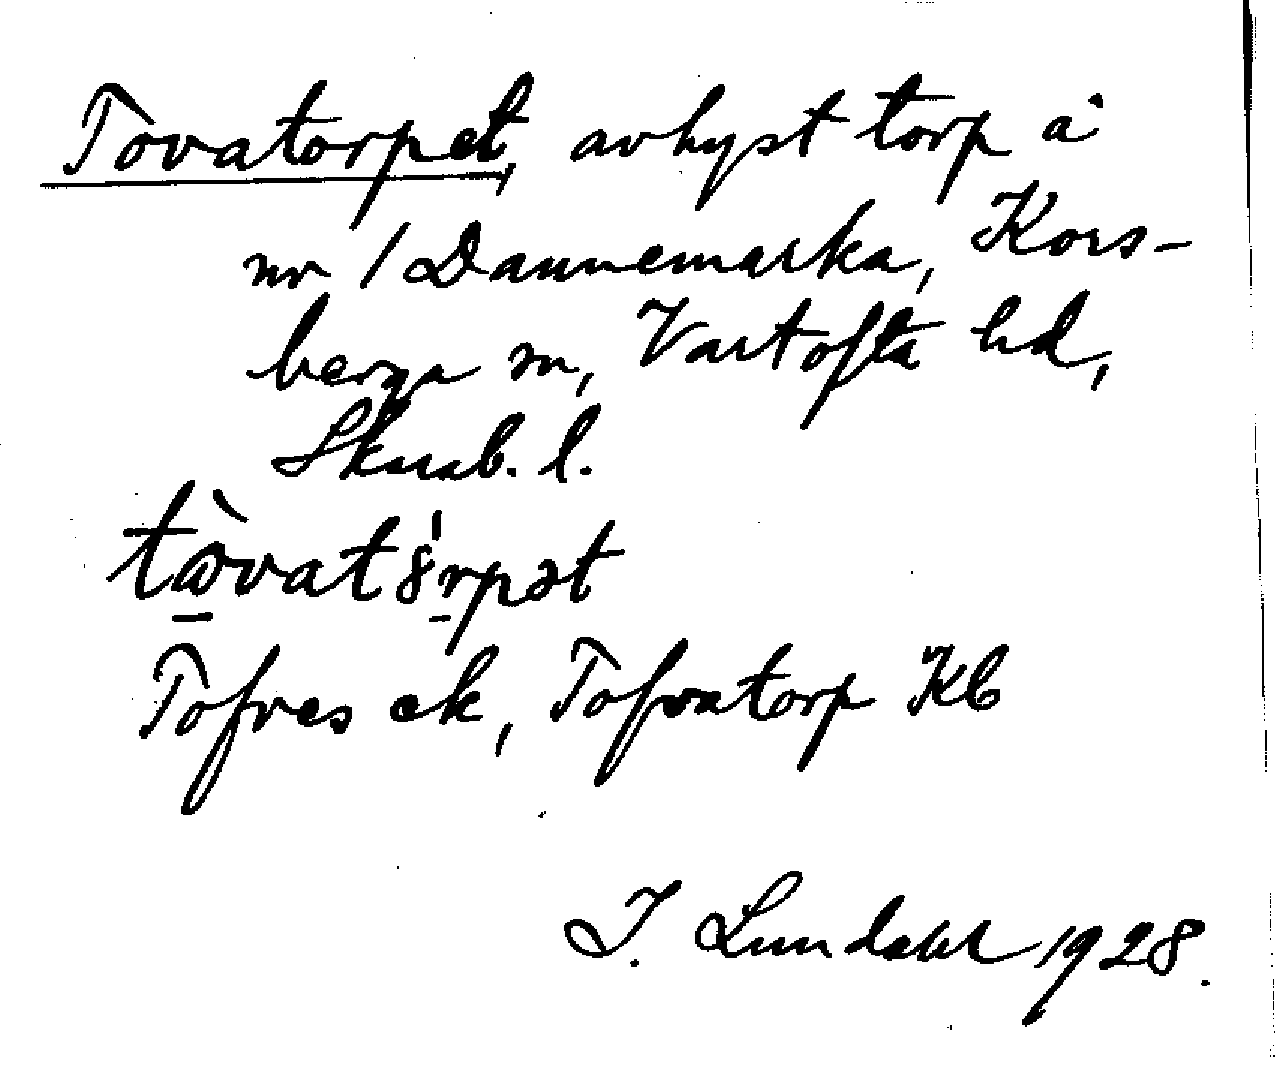 Tovatorpet, avhyst torp å
nr 1 Dannemarka, Kors-
berga sn, Vartofta hd,
Skarab. l.
tòvat8rpət
Tofves ek, Tofvatorp Kb
I. Lundahl 1928.